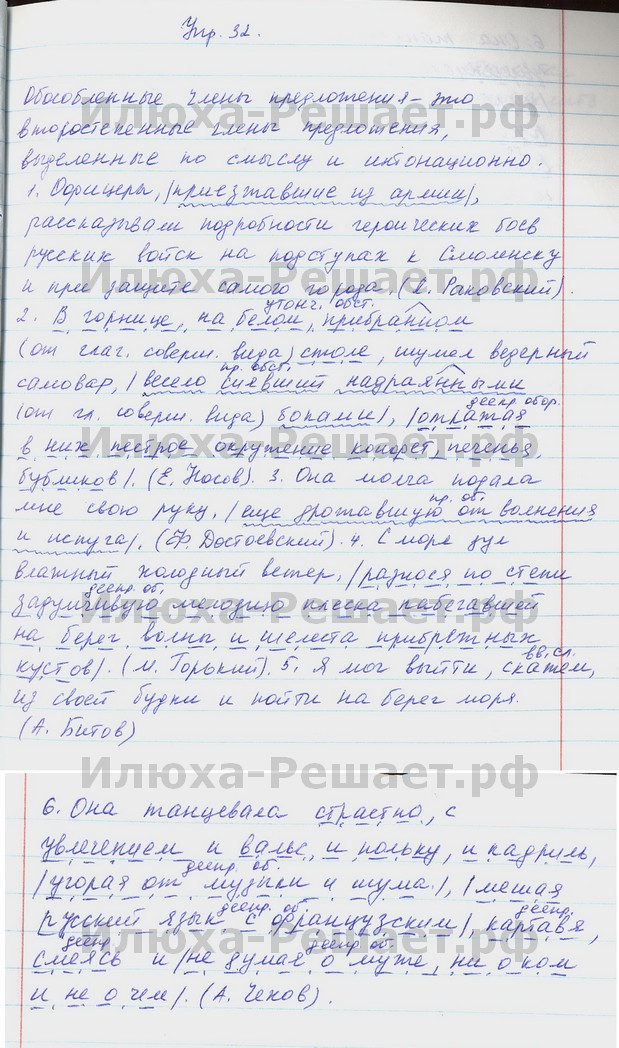 Упр. 32.
Обособленные члены предложения – это
второстепенные члены предложения,
выделенные по смыслу и интонационно.
1. Офицеры, |приезжавшие из армии|,
рассказывали подробности героических боев
русских войск на подступах к Смоленску
и при защите самого города. (Л. Раковский).
уточн. обст.
2. В горнице, на белом, прибранном
(от глаг. соверш. вида) столе, шумел ведерный
пр. обст.
самовар, |весело сиявший надраянными
дееpr. обор.
(от гл. соверш. вида) боками|, |отражая
в них пестрое окружение конфет, печенья,
бубликов|. (Е. Носов). 3. Она молча подала
пр. об.
мне свою руку, |еще дрожавшую от волнения
и испуга|. (Ф. Достоевский). 4. С моря дул
влажный холодный ветер, |разнося по степи
деепр. об.
задумчивую мелодию плеска набегавшей
на берег волны и шелеста прибрежных
вв. сл.
кустов|. (М. Горький). 5. Я мог выйти, скажем,
из своей будки и пойти на берег моря.
(А. Битов)
Илюха-Решает.рф
Илюха-Решает.рф
Илюха-Решает.рф
Илюха-Решает.рф
6. Она танцевала страстно, с
увлечением и вальс, и польку, и кадриль,
деепр. об.
|угорая от музыки и шума|, |мешая
деепр. об. деепр.
русский язык с французским|, картавя,
деепр. деепр. об.
смеясь и |не думая о муже, ни о ком
и не о чем|. (А. Чехов).
Илюха-Решает.рф